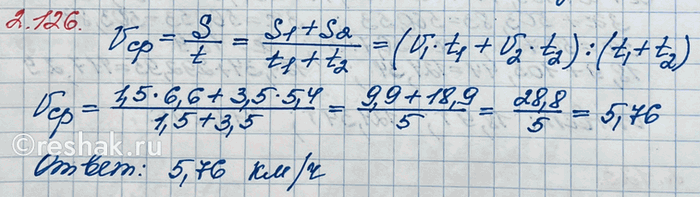 2.126.
Vср = S/t = (S1 + S2)/(t1 + t2) = (V1 · t1 + V2 · t2) : (t1 + t2)
Vср = (1,5 · 6,6 + 3,5 · 5,4)/(1,5 + 3,5) = (9,9 + 18,9)/5 = 28,8/5 = 5,76
Ответ: 5,76 км/ч
©reshak.ru